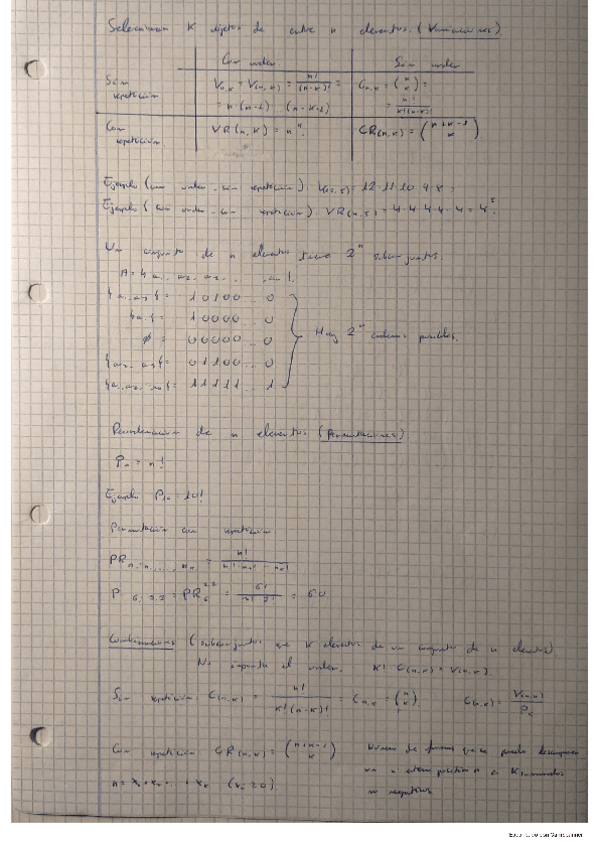 Seleccionar K objetos de entre n elementos. (Variaciones)
Con orden Sin orden
Sin repetición V_{n,K} = V(n,K) = n!/(n-K)! = C_{n,K} = (n K) =
= n·(n-1) (n-K-1) = n!/K!(n-K)!
Con repetición VR(n,K) = n^K. CR(n,K) = (n+K-1 K).
Ejemplo (con orden sin repetición). V(12,5) = 12·11·10·9·8
Ejemplo (con orden con repetición). VR(4,5) = 4·4·4·4·4 = 4^5.
Un conjunto de n elementos tiene 2^n subconjuntos.
= 10100...0
= 10000...0
∅ = 00000...0 Hay 2^n cadenas posibles.
= 01100...0
= 11111...1
de n elementos (Permutaciones)
P_n = n!
Ejemplo P_10 = 10!
Permutación con repetición
P 6; 2,2 = PR_6^{2,2} = 6!/2!·2! = 60
Combinaciones (subconjuntos que K elementos de un conjunto de n elementos)
No importa el orden. K! C(n,K) = V(n,K).
Sin repetición C(n,K) = n!/K!(n-K)! = C_{n,K} = (n K) C(n,K) = V(n,K)/P_K
Con repetición CR(n,K) = (n+K-1 K) Número de formas que se puede descomponer
un n entero positivo n en K sumandos
no negativos